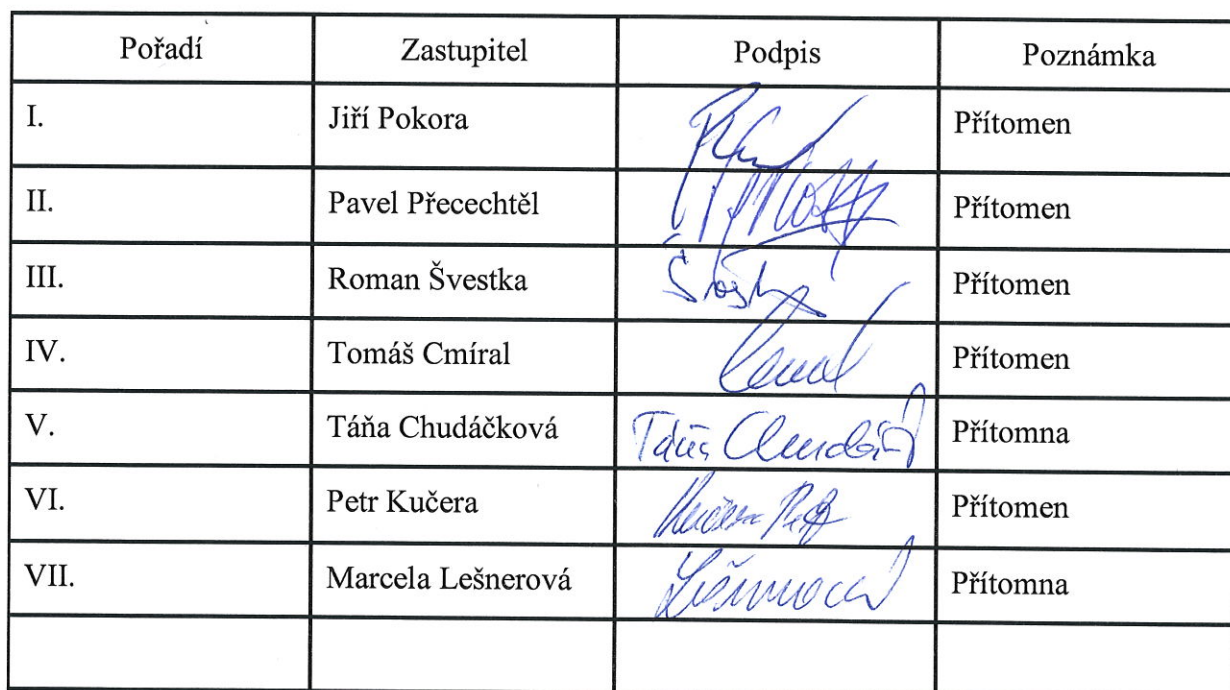 Pořadí Zastupitel Podpis Poznámka
I. Jiří Pokora Přítomen
II. Pavel Přecechtěl Přítomen
III. Roman Švestka Přítomen
IV. Tomáš Cmíral Přítomen
V. Táňa Chudáčková Táňa Přítomna
VI. Petr Kučera Přítomen
VII. Marcela Lešnerová Přítomna